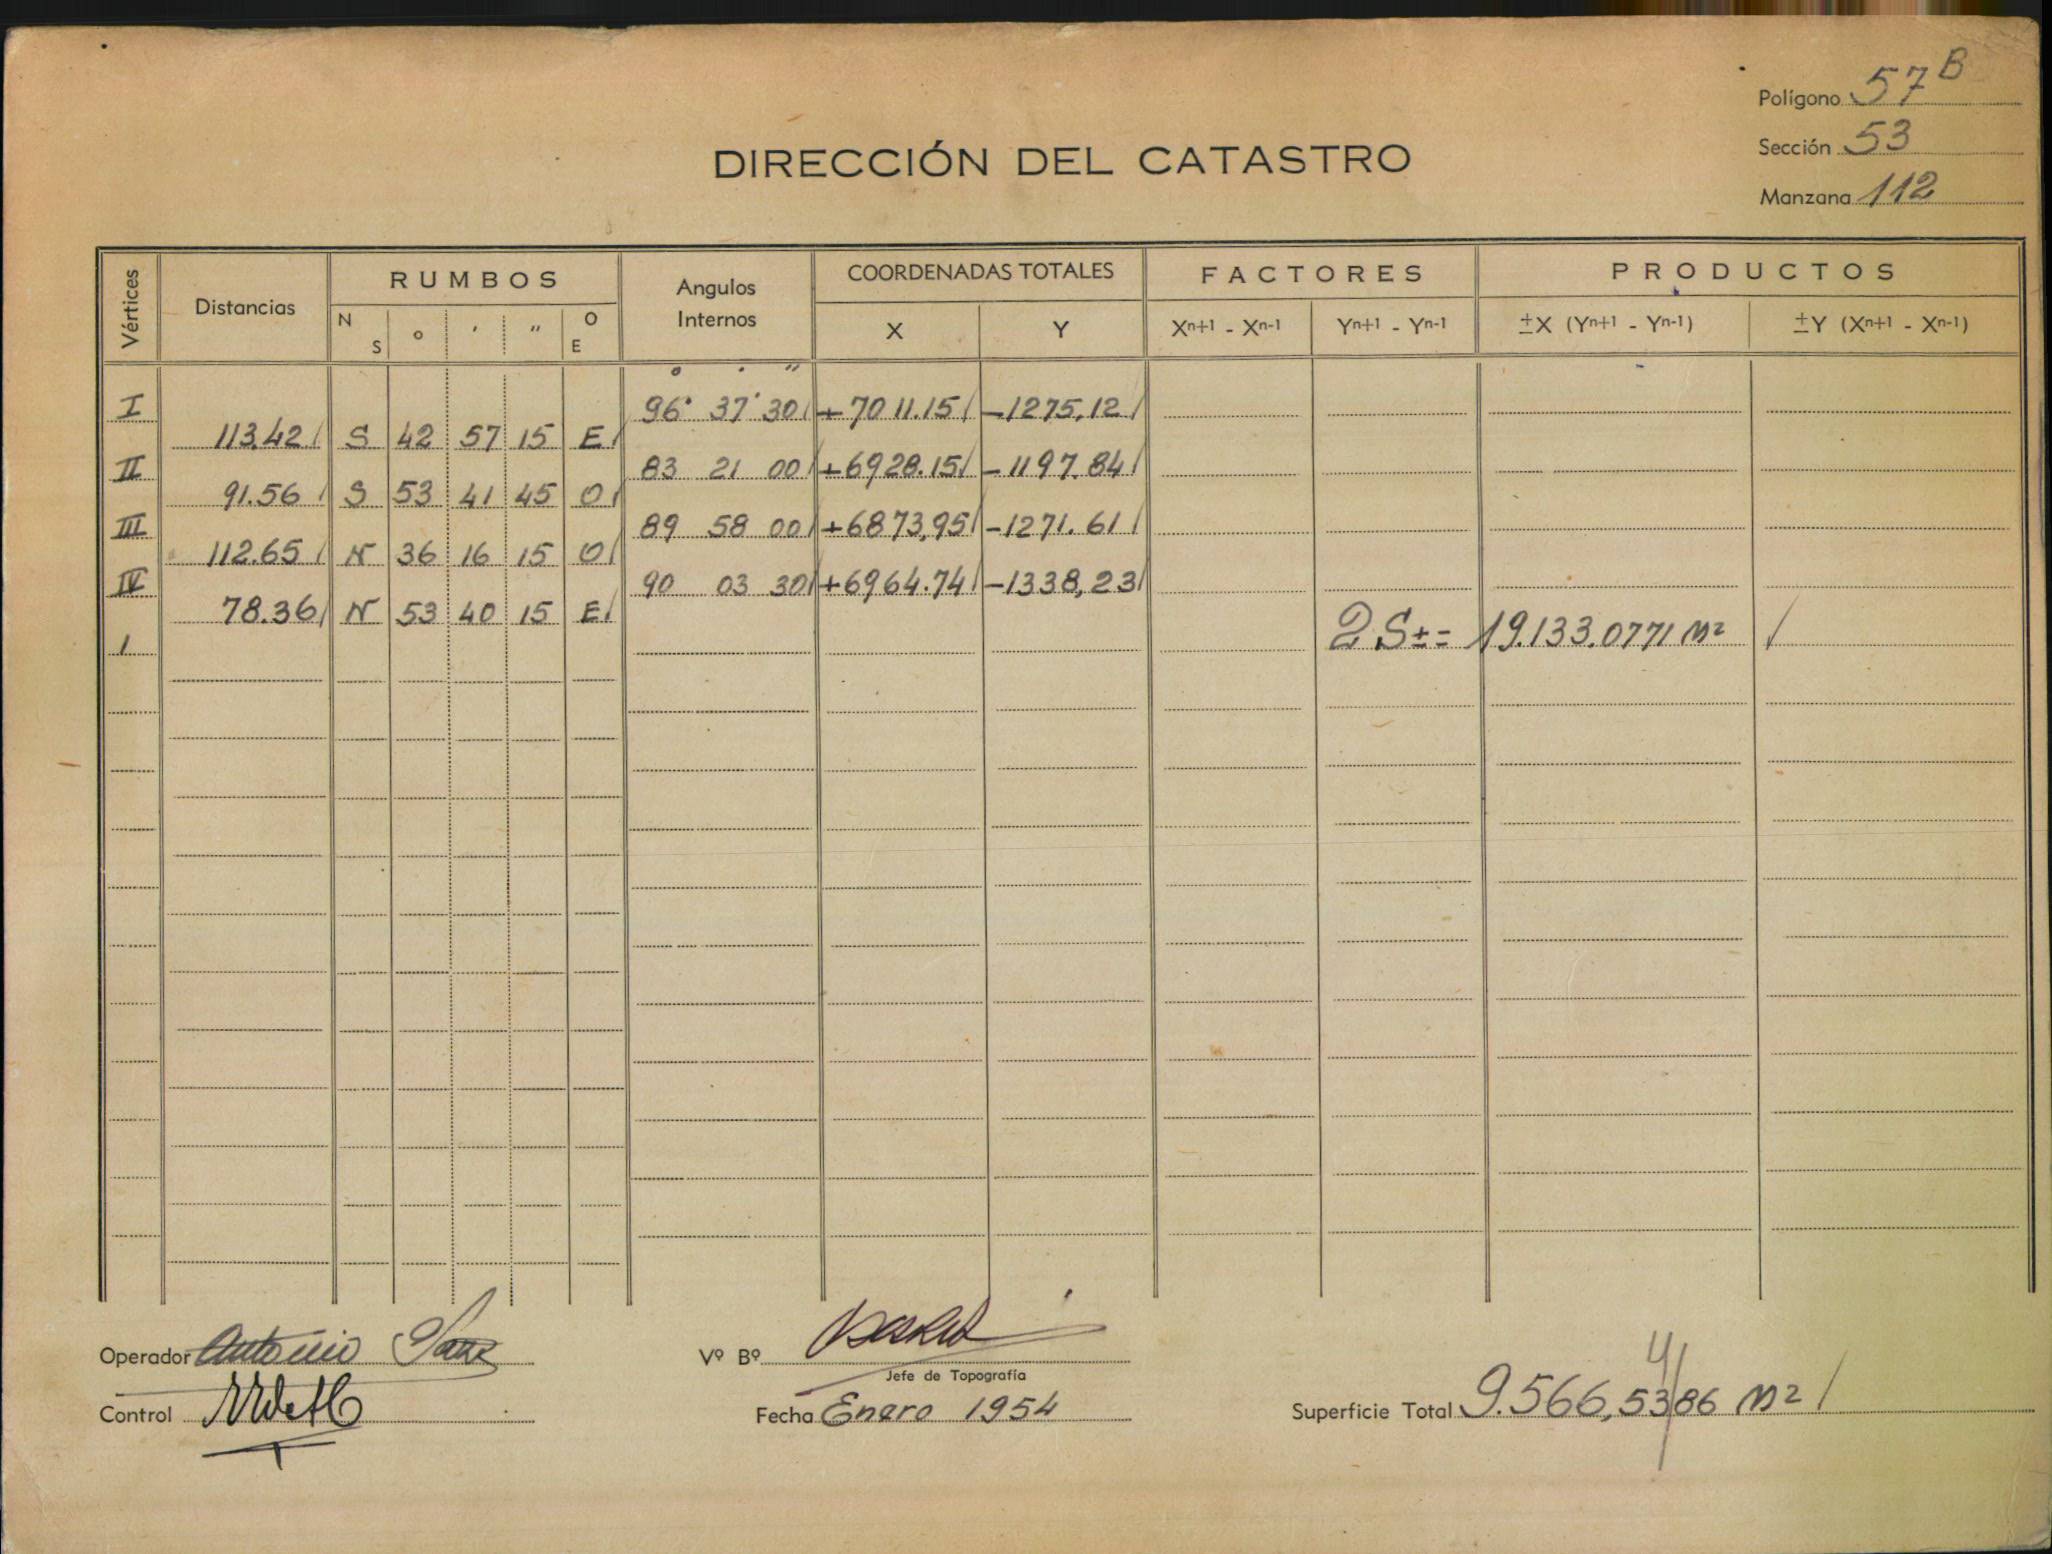 Polígono 57 B
DIRECCIÓN DEL CATASTRO
Sección 53
Manzana 112
Vértices Distancias RUMBOS Angulos Internos COORDENADAS TOTALES FACTORES PRODUCTOS
N S ° ′ ″ O E X Y Xn+1 - Xn-1 Yn+1 - Yn-1 ±X (Yn+1 - Yn-1) ±Y (Xn+1 - Xn-1)
° ′ ″
I 96° 37′ 30 +7011.15 -1275,12
113.42 S 42 57 15 E
II 83 21 00 +6928.15 -1197.84
91.56 S 53 41 45 O
III 89 58 00 +6873,95 -1271.61
112.65 N 36 16 15 O
IV 90 03 30 +6964.74 -1338,23
78.36 N 53 40 15 E
I 2 S ± = 19.133.0771 m2
Operador Antonio
Vº Bº
Jefe de Topografía
Control
Fecha Enero 1954
4
Superficie Total 9.566,5386 m2